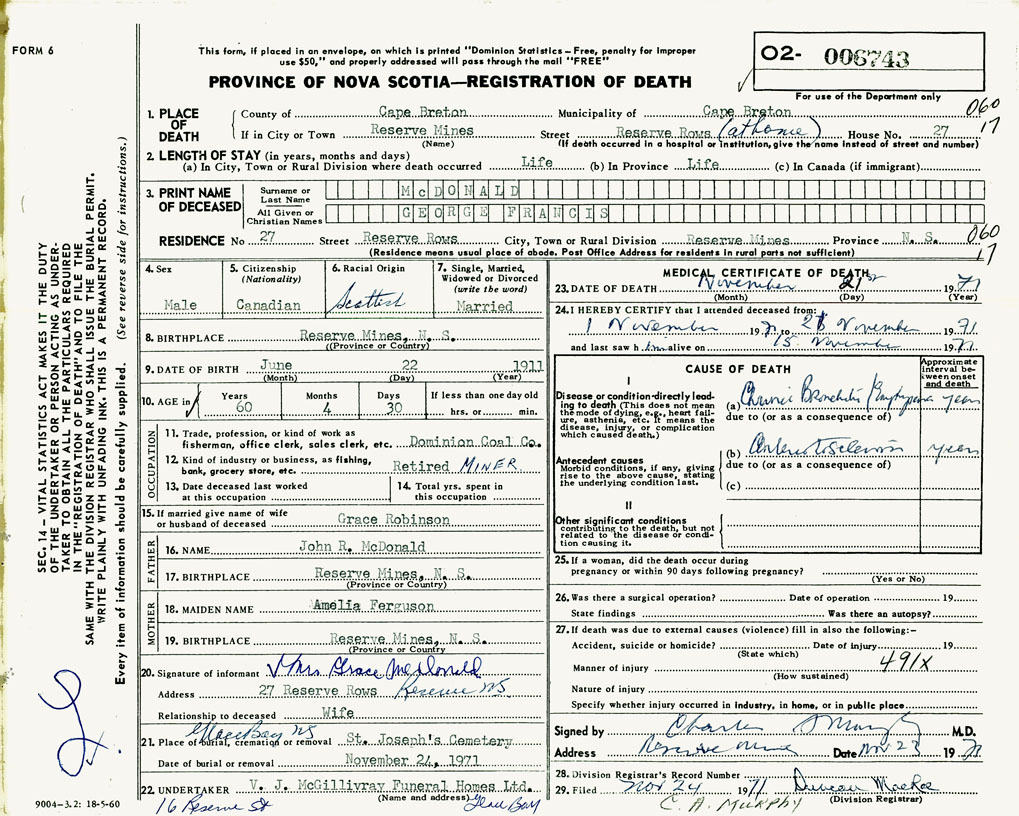 FORM 6
This form, if placed in an envelope, on which is printed "Dominion Statistics – Free, penalty for improper
use $50," and properly addressed will pass through the mail "FREE"
PROVINCE OF NOVA SCOTIA—REGISTRATION OF DEATH
O2- 006743
For use of the Department only
060
17
1. PLACE OF DEATH
County of Cape Breton Municipality of Cape Breton
If in City or Town Reserve Mines Street Reserve Rows (at home) House No. 27
(Name) (If death occurred in a hospital or institution, give the name instead of street and number)
2. LENGTH OF STAY (in years, months and days)
(a) In City, Town or Rural Division where death occurred Life (b) In Province Life (c) In Canada (if immigrant)
3. PRINT NAME OF DECEASED
Surname or Last Name McDONALD
All Given or Christian Names GEORGE FRANCIS
RESIDENCE No 27 Street Reserve Rows City, Town or Rural Division Reserve Mines Province N. S.
060
17
(Residence means usual place of abode. Post Office Address for residents in rural parts not sufficient)
4. Sex
Male
5. Citizenship
(Nationality)
Canadian
6. Racial Origin
Scottish
7. Single, Married, Widowed or Divorced
(write the word)
Married
8. BIRTHPLACE Reserve Mines, N. S.
(Province or Country)
9. DATE OF BIRTH June 22 1911
(Month) (Day) (Year)
10. AGE in
Years 60
Months 4
Days 30
If less than one day old
hrs. or min.
OCCUPATION
11. Trade, profession, or kind of work as
fisherman, office clerk, sales clerk, etc. Dominion Coal Co.
12. Kind of industry or business, as fishing,
bank, grocery store, etc. Retired MINER
13. Date deceased last worked
at this occupation
14. Total yrs. spent in
this occupation
15. If married give name of wife
or husband of deceased Grace Robinson
FATHER
16. NAME John R. McDonald
17. BIRTHPLACE Reserve Mines, N. S.
(Province or Country)
MOTHER
18. MAIDEN NAME Amelia Ferguson
19. BIRTHPLACE Reserve Mines, N. S.
(Province or Country
20. Signature of informant Mrs Grace McDonald
Address 27 Reserve Rows Reserve NS
Relationship to deceased Wife
Glace Bay NS
21. Place of burial, cremation or removal St. Joseph's Cemetery
Date of burial or removal November 24, 1971
22. UNDERTAKER V. J. McGillivray Funeral Homes Ltd.
(Name and address)
16 Reserve St Glace Bay
MEDICAL CERTIFICATE OF DEATH
23. DATE OF DEATH November 21st 1971
(Month) (Day) (Year)
24. I HEREBY CERTIFY that I attended deceased from:
1 November 1971 to 21 November 1971
and last saw him alive on 15 November 1971
CAUSE OF DEATH
Approximate interval between onset and death
I
Disease or condition directly leading to death (This does not mean the mode of dying, e.g., heart failure, asthenia, etc. It means the disease, injury, or complication which caused death.)
(a) Chronic Bronchitis / Emphysema years
due to (or as a consequence of)
Antecedent causes
Morbid conditions, if any, giving rise to the above cause, stating the underlying condition last.
(b) Arteriosclerosis years
due to (or as a consequence of)
(c)
II
Other significant conditions
contributing to the death, but not related to the disease or condition causing it.
25. If a woman, did the death occur during
pregnancy or within 90 days following pregnancy?
(Yes or No)
26. Was there a surgical operation? Date of operation 19
State findings Was there an autopsy?
27. If death was due to external causes (violence) fill in also the following:–
Accident, suicide or homicide? Date of injury 19
(State which)
491X
Manner of injury
(How sustained)
Nature of injury
Specify whether injury occurred in industry, in home, or in public place
Signed by Charles M.D.
Address Reserve Mines Date Nov 23 1971
28. Division Registrar's Record Number
29. Filed Nov 24 1971 Duncan MacRae
(Division Registrar)
C. A. MURPHY
SEC. 14 – VITAL STATISTICS ACT MAKES IT THE DUTY
OF THE UNDERTAKER OR PERSON ACTING AS UNDER-
TAKER TO OBTAIN ALL THE PARTICULARS REQUIRED
IN THE "REGISTRATION OF DEATH" AND TO FILE THE
SAME WITH THE DIVISION REGISTRAR WHO SHALL ISSUE THE BURIAL PERMIT.
WRITE PLAINLY WITH UNFADING INK. THIS IS A PERMANENT RECORD.
Every item of information should be carefully supplied. (See reverse side for instructions.)
9004-3.2: 18-5-60